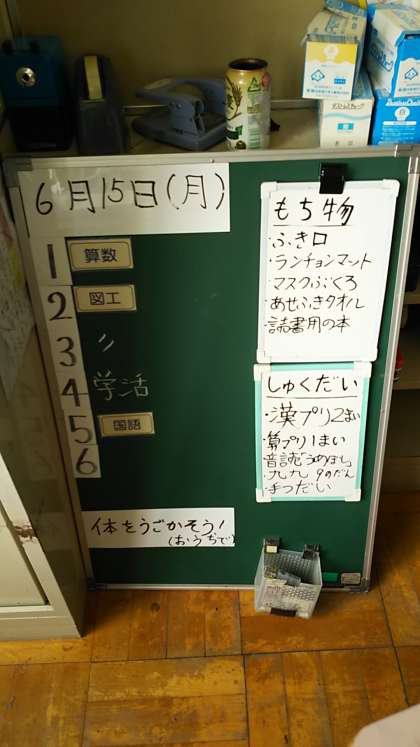 6月15日(月)
1 算数
2 図工
3 〃
4 学活
5 国語
6
体をうごかそう!
(おうちで)
もち物
・ふき口
・ランチョンマット
・マスクぶくろ
・あせふきタオル
・読書用の本
しゅくだい
・漢プリ2まい
・算プリ1まい
・音読「うめぼし」
・九九 9のだん
・手つだい